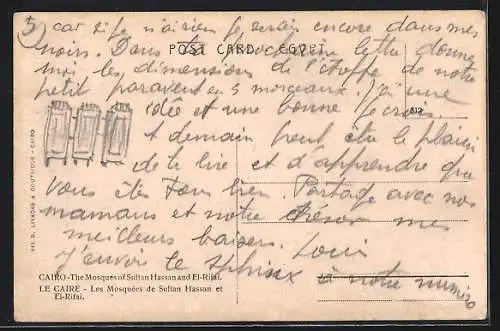 5) car si je n'ai rien je serais encore dans mes
noirs. Dans la prochaine lettre donne
POST CARD - EGYPT
moi les dimensions de l'étoffe de notre
petit paravent en 3 morceaux. J'ai une
idée et une bonne je crois.
812
et demain peut être le plaisir
de te lire et d'apprendre que
vous êtes tous bien. Partage avec nos
mamans et notre trésor mes
meilleurs baisers. Louis
J'envoie le sphinx à notre numéro
CAIRO - The Mosques of Sultan Hassan and El-Rifai.
LE CAIRE - Les Mosquées de Sultan Hassan et
El-Rifai.